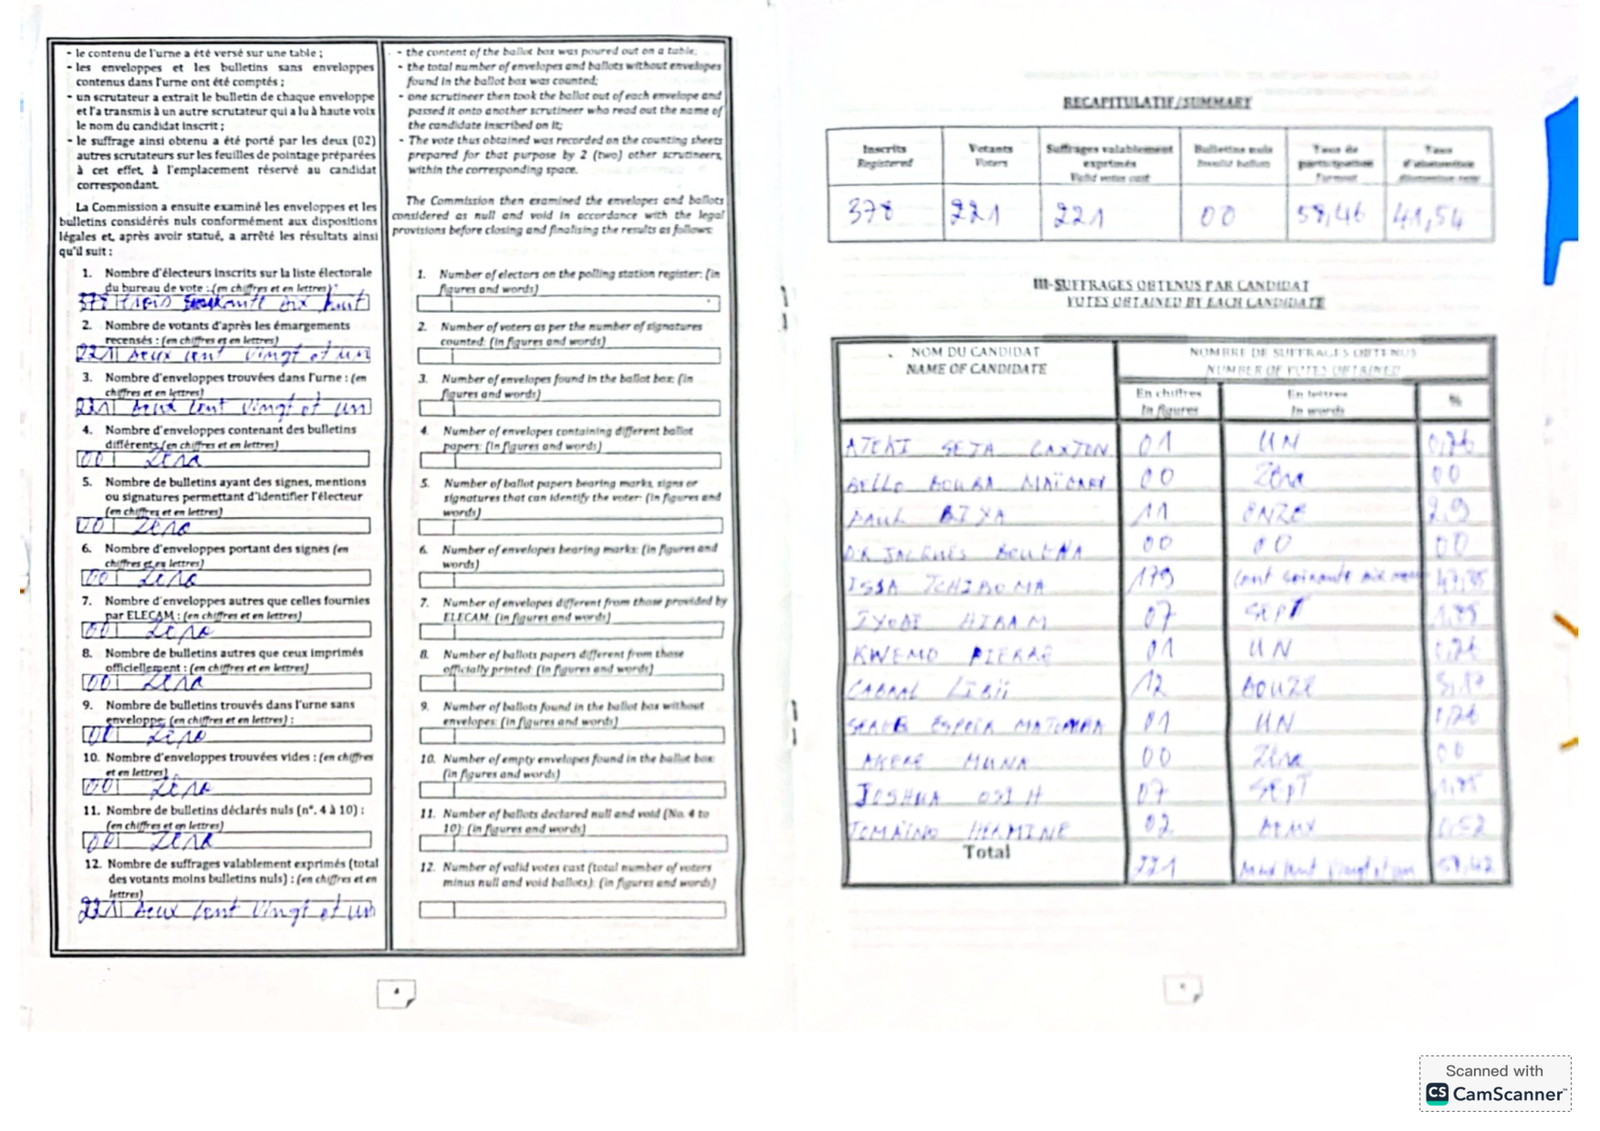 - le contenu de l'urne a été versé sur une table ;
- les enveloppes et les bulletins sans enveloppes
contenus dans l'urne ont été comptés ;
- un scrutateur a extrait le bulletin de chaque enveloppe
et l'a transmis à un autre scrutateur qui a lu à haute voix
le nom du candidat inscrit ;
- le suffrage ainsi obtenu a été porté par les deux (02)
autres scrutateurs sur les feuilles de pointage préparées
à cet effet, à l'emplacement réservé au candidat
correspondant.
La Commission a ensuite examiné les enveloppes et les
bulletins considérés nuls conformément aux dispositions
légales et, après avoir statué, a arrêté les résultats ainsi
qu'il suit :
1. Nombre d'électeurs inscrits sur la liste électorale
du bureau de vote : (en chiffres et en lettres)
378 trois dix huit
2. Nombre de votants d'après les émargements
recensés : (en chiffres et en lettres)
221 deux cent vingt et un
3. Nombre d'enveloppes trouvées dans l'urne : (en
chiffres et en lettres)
221 deux cent vingt et un
4. Nombre d'enveloppes contenant des bulletins
différents (en chiffres et en lettres)
00 Zéro
5. Nombre de bulletins ayant des signes, mentions
ou signatures permettant d'identifier l'électeur
(en chiffres et en lettres)
00 Zéro
6. Nombre d'enveloppes portant des signes (en
chiffres et en lettres)
00 Zéro
7. Nombre d'enveloppes autres que celles fournies
par ELECAM : (en chiffres et en lettres)
00 Zéro
8. Nombre de bulletins autres que ceux imprimés
officiellement : (en chiffres et en lettres)
00 Zéro
9. Nombre de bulletins trouvés dans l'urne sans
enveloppe: (en chiffres et en lettres) :
00 Zéro
10. Nombre d'enveloppes trouvées vides : (en chiffres
et en lettres)
00 Zéro
11. Nombre de bulletins déclarés nuls (n°. 4 à 10) :
(en chiffres et en lettres)
00 Zéro
12. Nombre de suffrages valablement exprimés (total
des votants moins bulletins nuls) : (en chiffres et en
lettres)
221 deux cent vingt et un
- the content of the ballot box was poured out on a table;
- the total number of envelopes and ballots without envelopes
found in the ballot box was counted;
- one scrutineer then took the ballot out of each envelope and
passed it onto another scrutineer who read out the name of
the candidate inscribed on it;
- The vote thus obtained was recorded on the counting sheets
prepared for that purpose by 2 (two) other scrutineers,
within the corresponding space.
The Commission then examined the envelopes and ballots
considered as null and void in accordance with the legal
provisions before closing and finalising the results as follows:
1. Number of electors on the polling station register: (in
figures and words)
2. Number of voters as per the number of signatures
counted: (in figures and words)
3. Number of envelopes found in the ballot box: (in
figures and words)
4. Number of envelopes containing different ballot
papers: (in figures and words)
5. Number of ballot papers bearing marks, signs or
signatures that can identify the voter: (in figures and
words)
6. Number of envelopes bearing marks: (in figures and
words)
7. Number of envelopes different from those provided by
ELECAM: (in figures and words)
8. Number of ballots papers different from those
officially printed: (in figures and words)
9. Number of ballots found in the ballot box without
envelopes: (in figures and words)
10. Number of empty envelopes found in the ballot box:
(in figures and words)
11. Number of ballots declared null and void (No. 4 to
10): (in figures and words)
12. Number of valid votes cast (total number of voters
minus null and void ballots): (in figures and words)
4
RECAPITULATIF/SUMMARY
Inscrits Registered Votants Voters Suffrages valablement exprimés Valid votes cast Bulletins nuls Invalid ballots Taux de participation Turnout Taux d'abstention Abstention rate
378 221 221 00 58,46 41,54
III-SUFFRAGES OBTENUS PAR CANDIDAT
VOTES OBTAINED BY EACH CANDIDATE
NOM DU CANDIDAT NOMBRE DE SUFFRAGES OBTENUS
NAME OF CANDIDATE NUMBER OF VOTES OBTAINED
En chiffres En lettres %
In figures In words
ATEKI SETA CAXTON 01 UN 0,26
BELLO BOUBA MAÏGARY 00 Zéro 00
PAUL BIYA 11 ONZE 2,9
DR JACQUES BOUGHA 00 00 00
ISSA TCHIROMA 179 Cent soixante dix neuf 47,35
IYODI HIRAM 07 SEPT 1,85
KWEMO PIERRE 01 UN 0,26
CABRAL LIBII 12 DOUZE 3,17
SERGE ESPOIR MATOMBA 01 UN 0,26
AKERE MUNA 00 Zéro 00
JOSHUA OSIH 07 SEPT 1,85
TOMAÏNO HERMINE 02 DEUX 0,52
Total 221 deux cent vingt et un
5
Scanned with
CS CamScanner